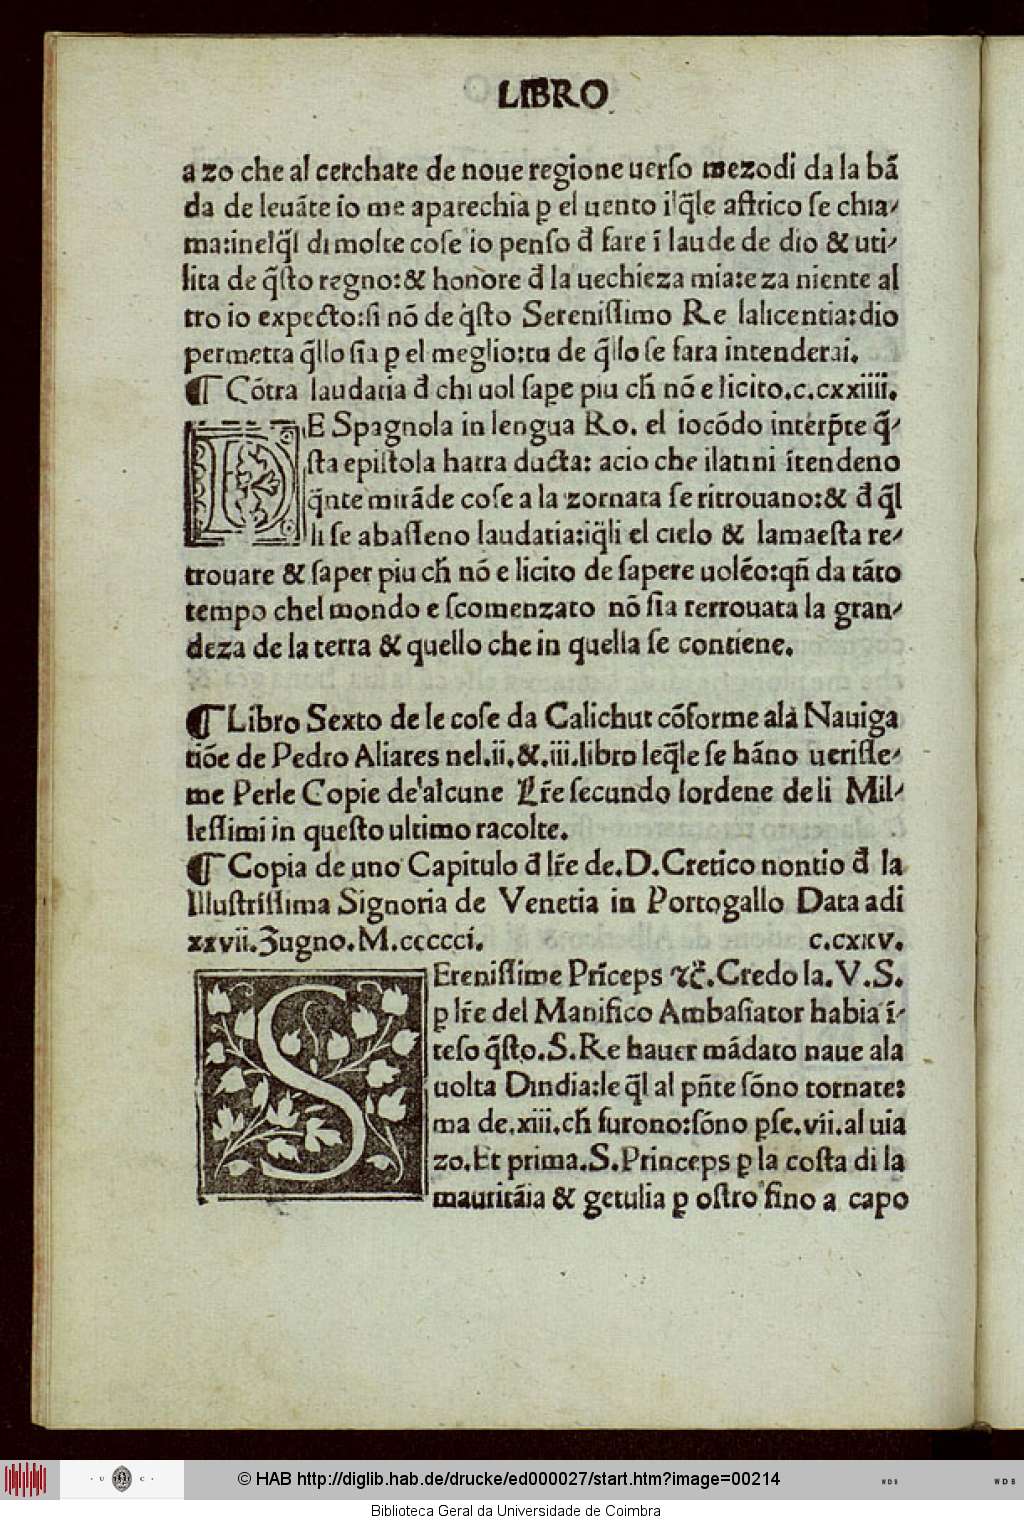 LIBRO
a zo che al cerchare de noue regione uerso mezodi da la bā
da de leuāte io me aparechia ꝑ el uento ilq̄le astrico se chia-
ma:inelq̄l di molte cose io penso đ fare ī laude de dio & uti-
lita de q̄sto regno:& honore đ la uechieza mia:e za niente al
tro io expecto:si nō de q̄sto Serenissimo Re lalicentia:dio
permetta q̄llo sia ꝑ el meglio:tu de q̄llo se fara intenderai.
¶ Cōtra laudatia đ chi uol sape piu cħ nō e licito.c.cxxiiii.
DE Spagnola in lengua Ro. el iocōdo interp̄te q̄-
sta epistola hatra ducta: acio che ilatini ītendeno
q̄nte mirāde cose a la zornata se ritrouano:& đ q̄l
li se abasteno laudatia:iq̄li el cielo & lamaesta re-
trouare & saper piu cħ nō e licito de sapere uolēo:qn̄ da tāto
tempo chel mondo e scomenzato nō sia terrouata la gran-
deza de la terra & quello che in quella se contiene.
¶ Libro Sexto de le cose da Calichut cōforme ala Nauiga
tiōe de Pedro Aliares nel.ii.&.iii.libro leq̄le se hāno ueriste-
me Perle Copie de alcune Lr̄e secundo lordene deli Mil-
lessimi in questo ultimo racolte.
¶ Copia de uno Capitulo đ lr̄e de.D.Cretico nontio đ la
Illustrissima Signoria de Venetia in Portogallo Data adi
xxvii.Zugno.M.ccccci. c.cxxv.
SErenissime Prīceps ⁊c̄.Credo la.V.S.
ꝑ lr̄e del Manifico Ambasiator habia ī-
teso q̄sto.S.Re hauer mādato naue ala
uolta Dindia:le q̄l al pn̄te sōno tornate:
ma de.xiii.cħ furono:sōno ꝑse.vii.al uia
zo.Et prima.S.Princeps ꝑ la costa di la
mauritāia & getulia ꝑ ostro fino a capo
U C
© HAB http://diglib.hab.de/drucke/ed000027/start.htm?image=00214
WDB
WDB
Biblioteca Geral da Universidade de Coimbra